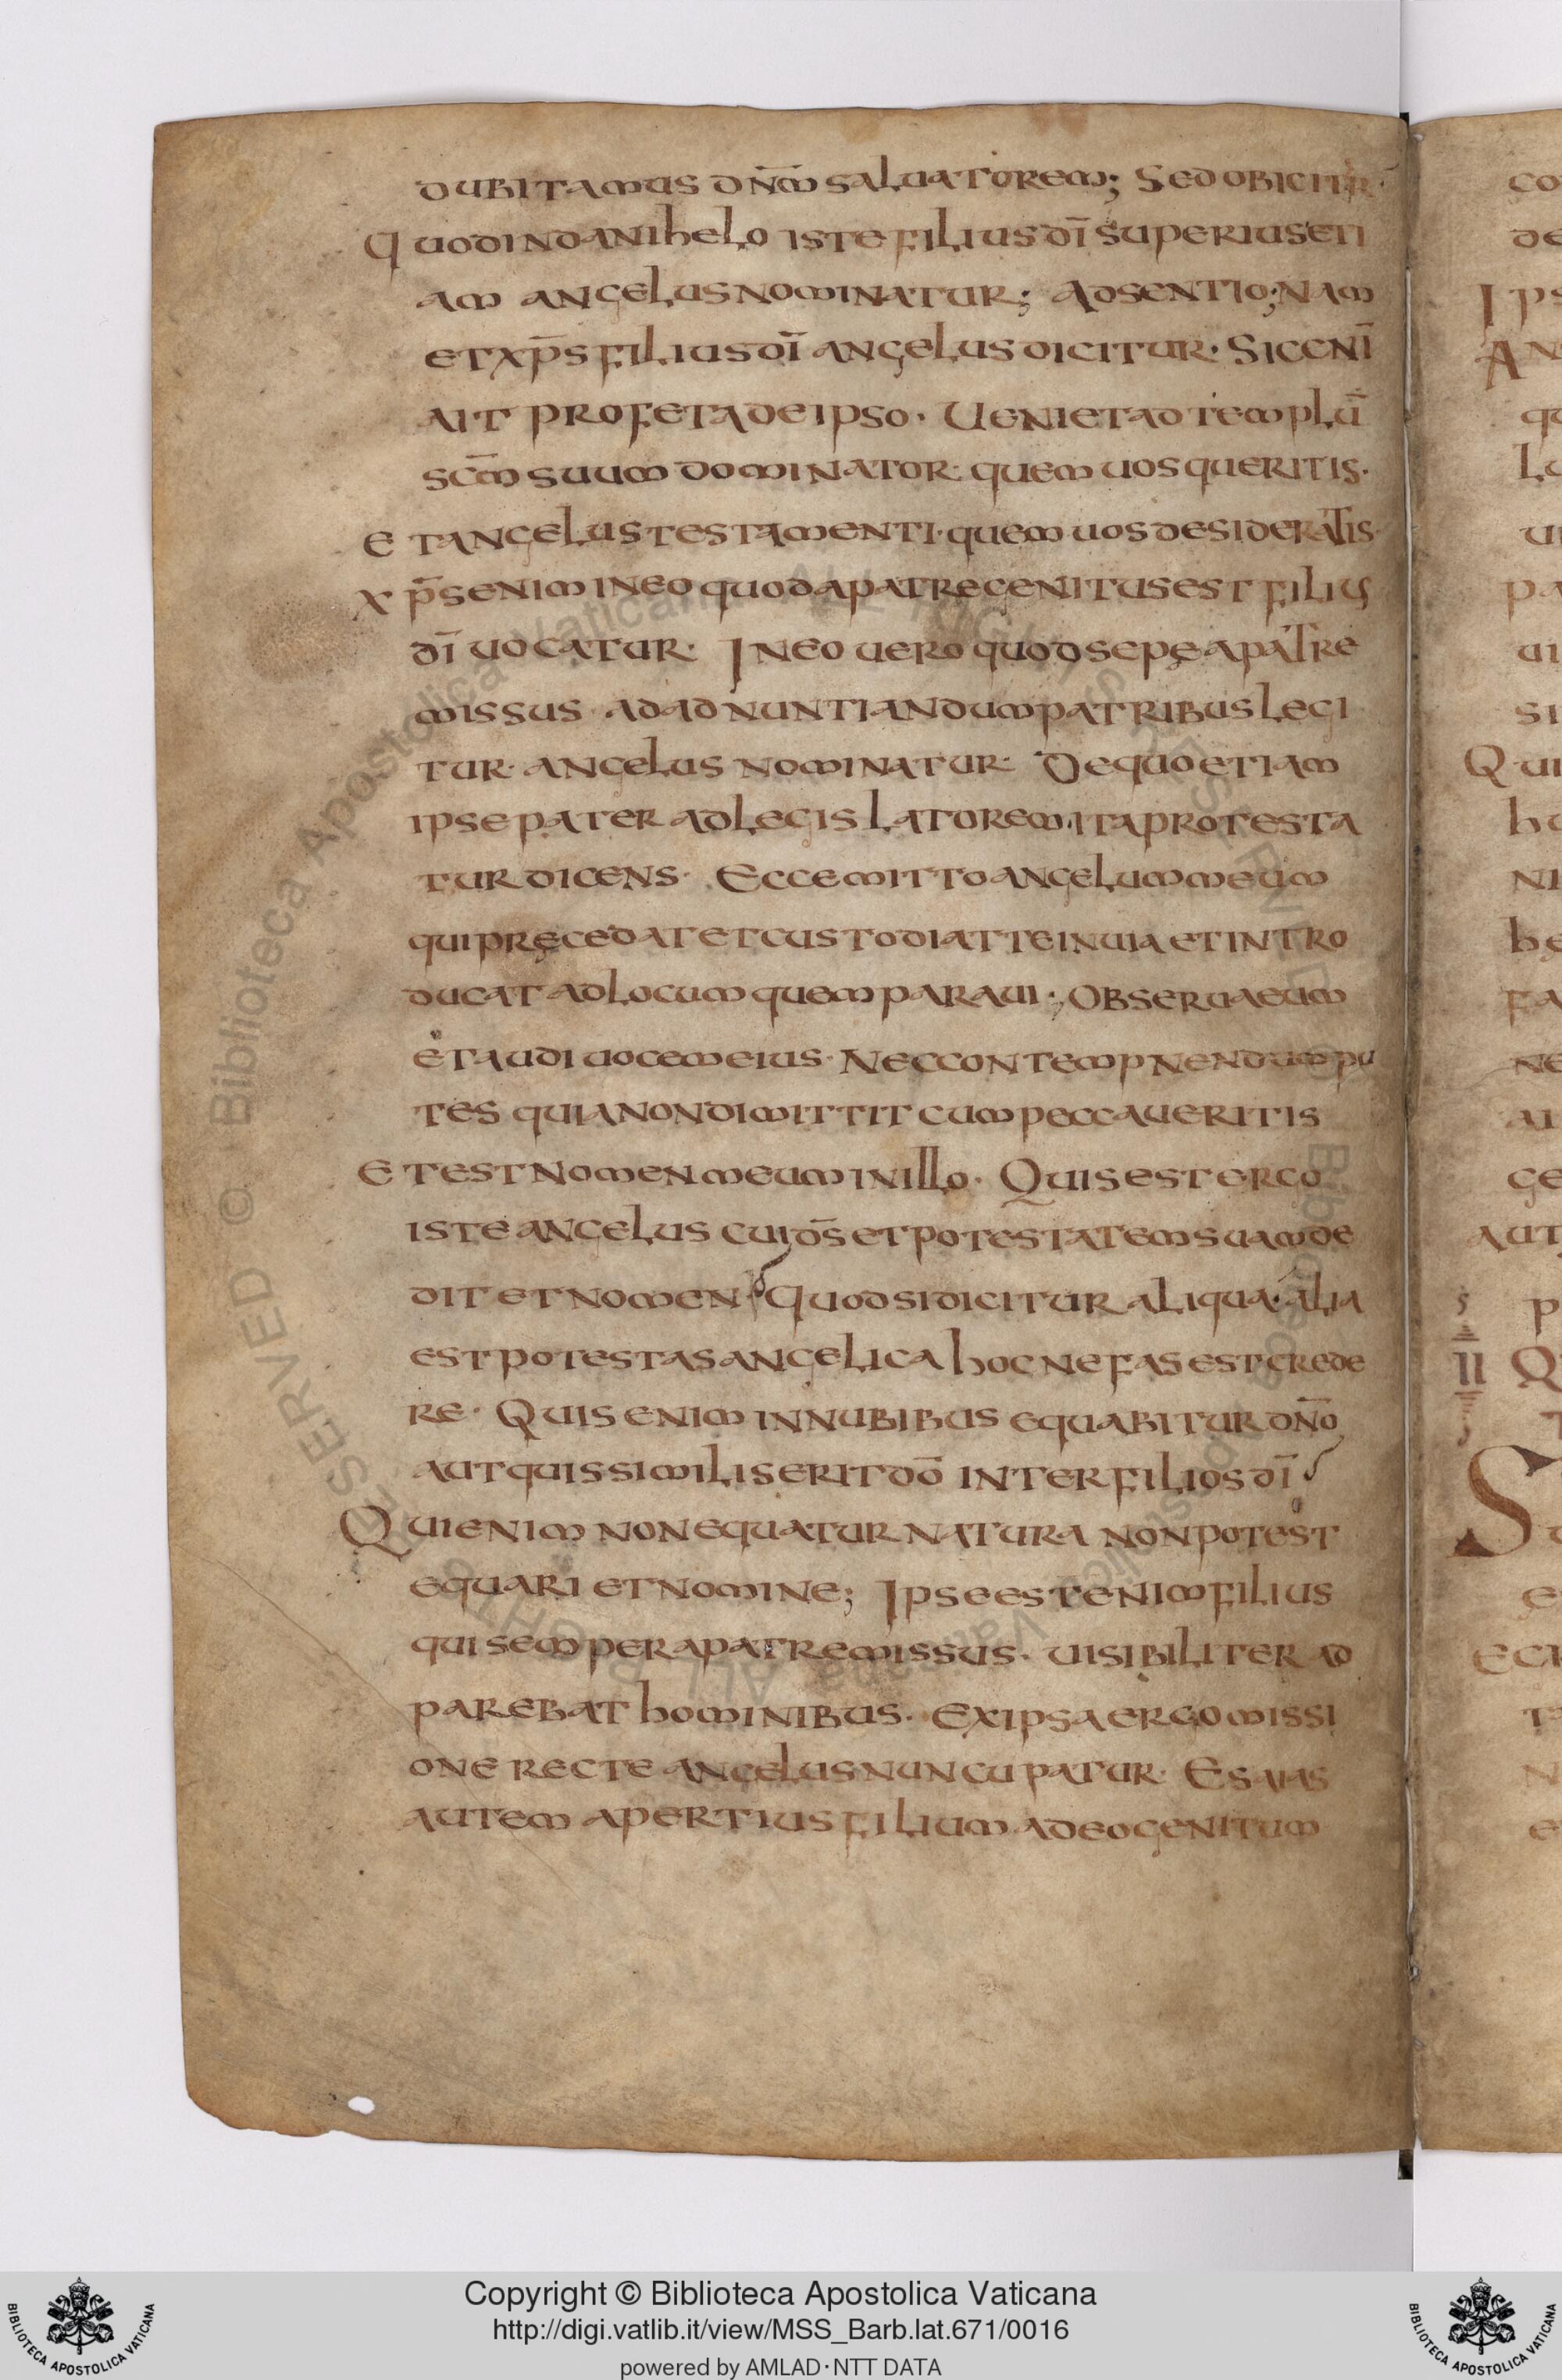 dubitamus dn̄m̄ saluatorem; Sed obicitur
Quod in danihelo iste filius dī superius eti
am angelus nominatur; Adsentio; Nam
et xp̄s filius dī angelus dicitur· Sic enī
ait profeta de ipso· Veniet ad templū
sc̄m suum dominator· quem uos queritis·
Et angelus testamenti· quem uos desideratis·
Xp̄s enim in eo quod a patre genitus est filius
dī uocatur· In eo uero quod sepe a patre
missus ad adnuntiandum patribus legi
tur· angelus nominatur· De quo etiam
ipse pater ad legislatorem ita protesta
tur dicens· Ecce mitto angelum meum
qui pręcedat et custodiat te in uia et intro
ducat ad locum quem paraui· Obserua eum
et audi uocem eius· Nec contempnendum pu
tes quia non dimittit cum peccaueritis
Et est nomen meum in illo· Quis est ergo
iste angelus cui dš et potestatem suam de
dit et nomen· Quod si dicitur aliqua· alia
est potestas angelica hoc nefas est crede
re· Quis enim in nubibus equabitur dn̄o
aut quis similis erit dō inter filios dī
Qui enim non equatur natura non potest
equari et nomine; Ipse est enim filius
qui semper a patre missus· uisibiliter ad
parebat hominibus· Ex ipsa ergo missi
one recte angelus nuncupatur· Esaias
autem apertius filium a deo genitum
co
de
Ips
An
qu
Lu
ui
pa
ui
si
Qui
hu
ni
he
fa
ne
ai
ge
aut
p
II Q
S
e
Eci
ta
n
e
Copyright © Biblioteca Apostolica Vaticana
http://digi.vatlib.it/view/MSS_Barb.lat.671/0016
powered by AMLAD·NTT DATA
BIBLIOTECA APOSTOLICA VATICANA
BIBLIOTECA APOSTOLICA VATICANA